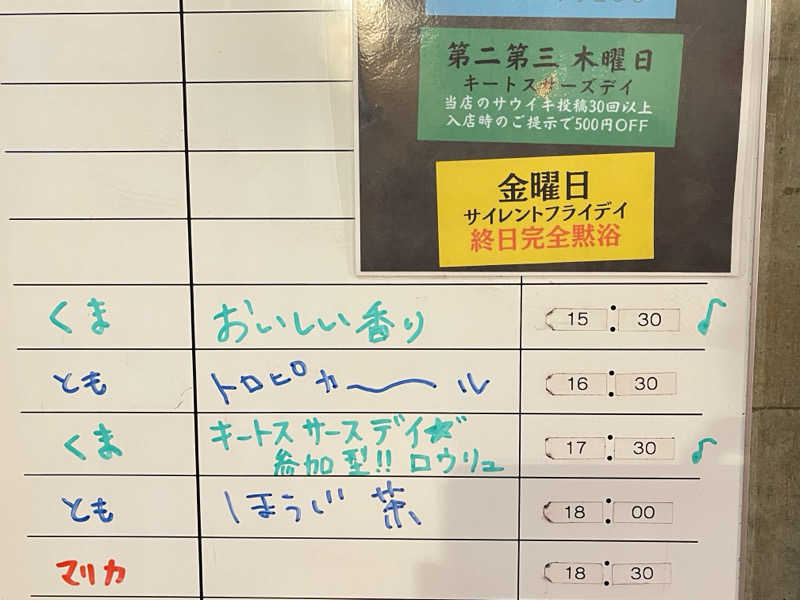 第二第三 木曜日
キートスサーズデイ
当店のサウイキ投稿30回以上
入店時のご提示で500円OFF
金曜日
サイレントフライデイ
終日完全黙浴
くま おいしい香り 15:30 ♪
とも トロピカ〜〜ル 16:30
くま キートスサースデイ☆
参加型!! ロウリュ 17:30 ♪
とも ほうじ茶 18:00
マリカ 18:30